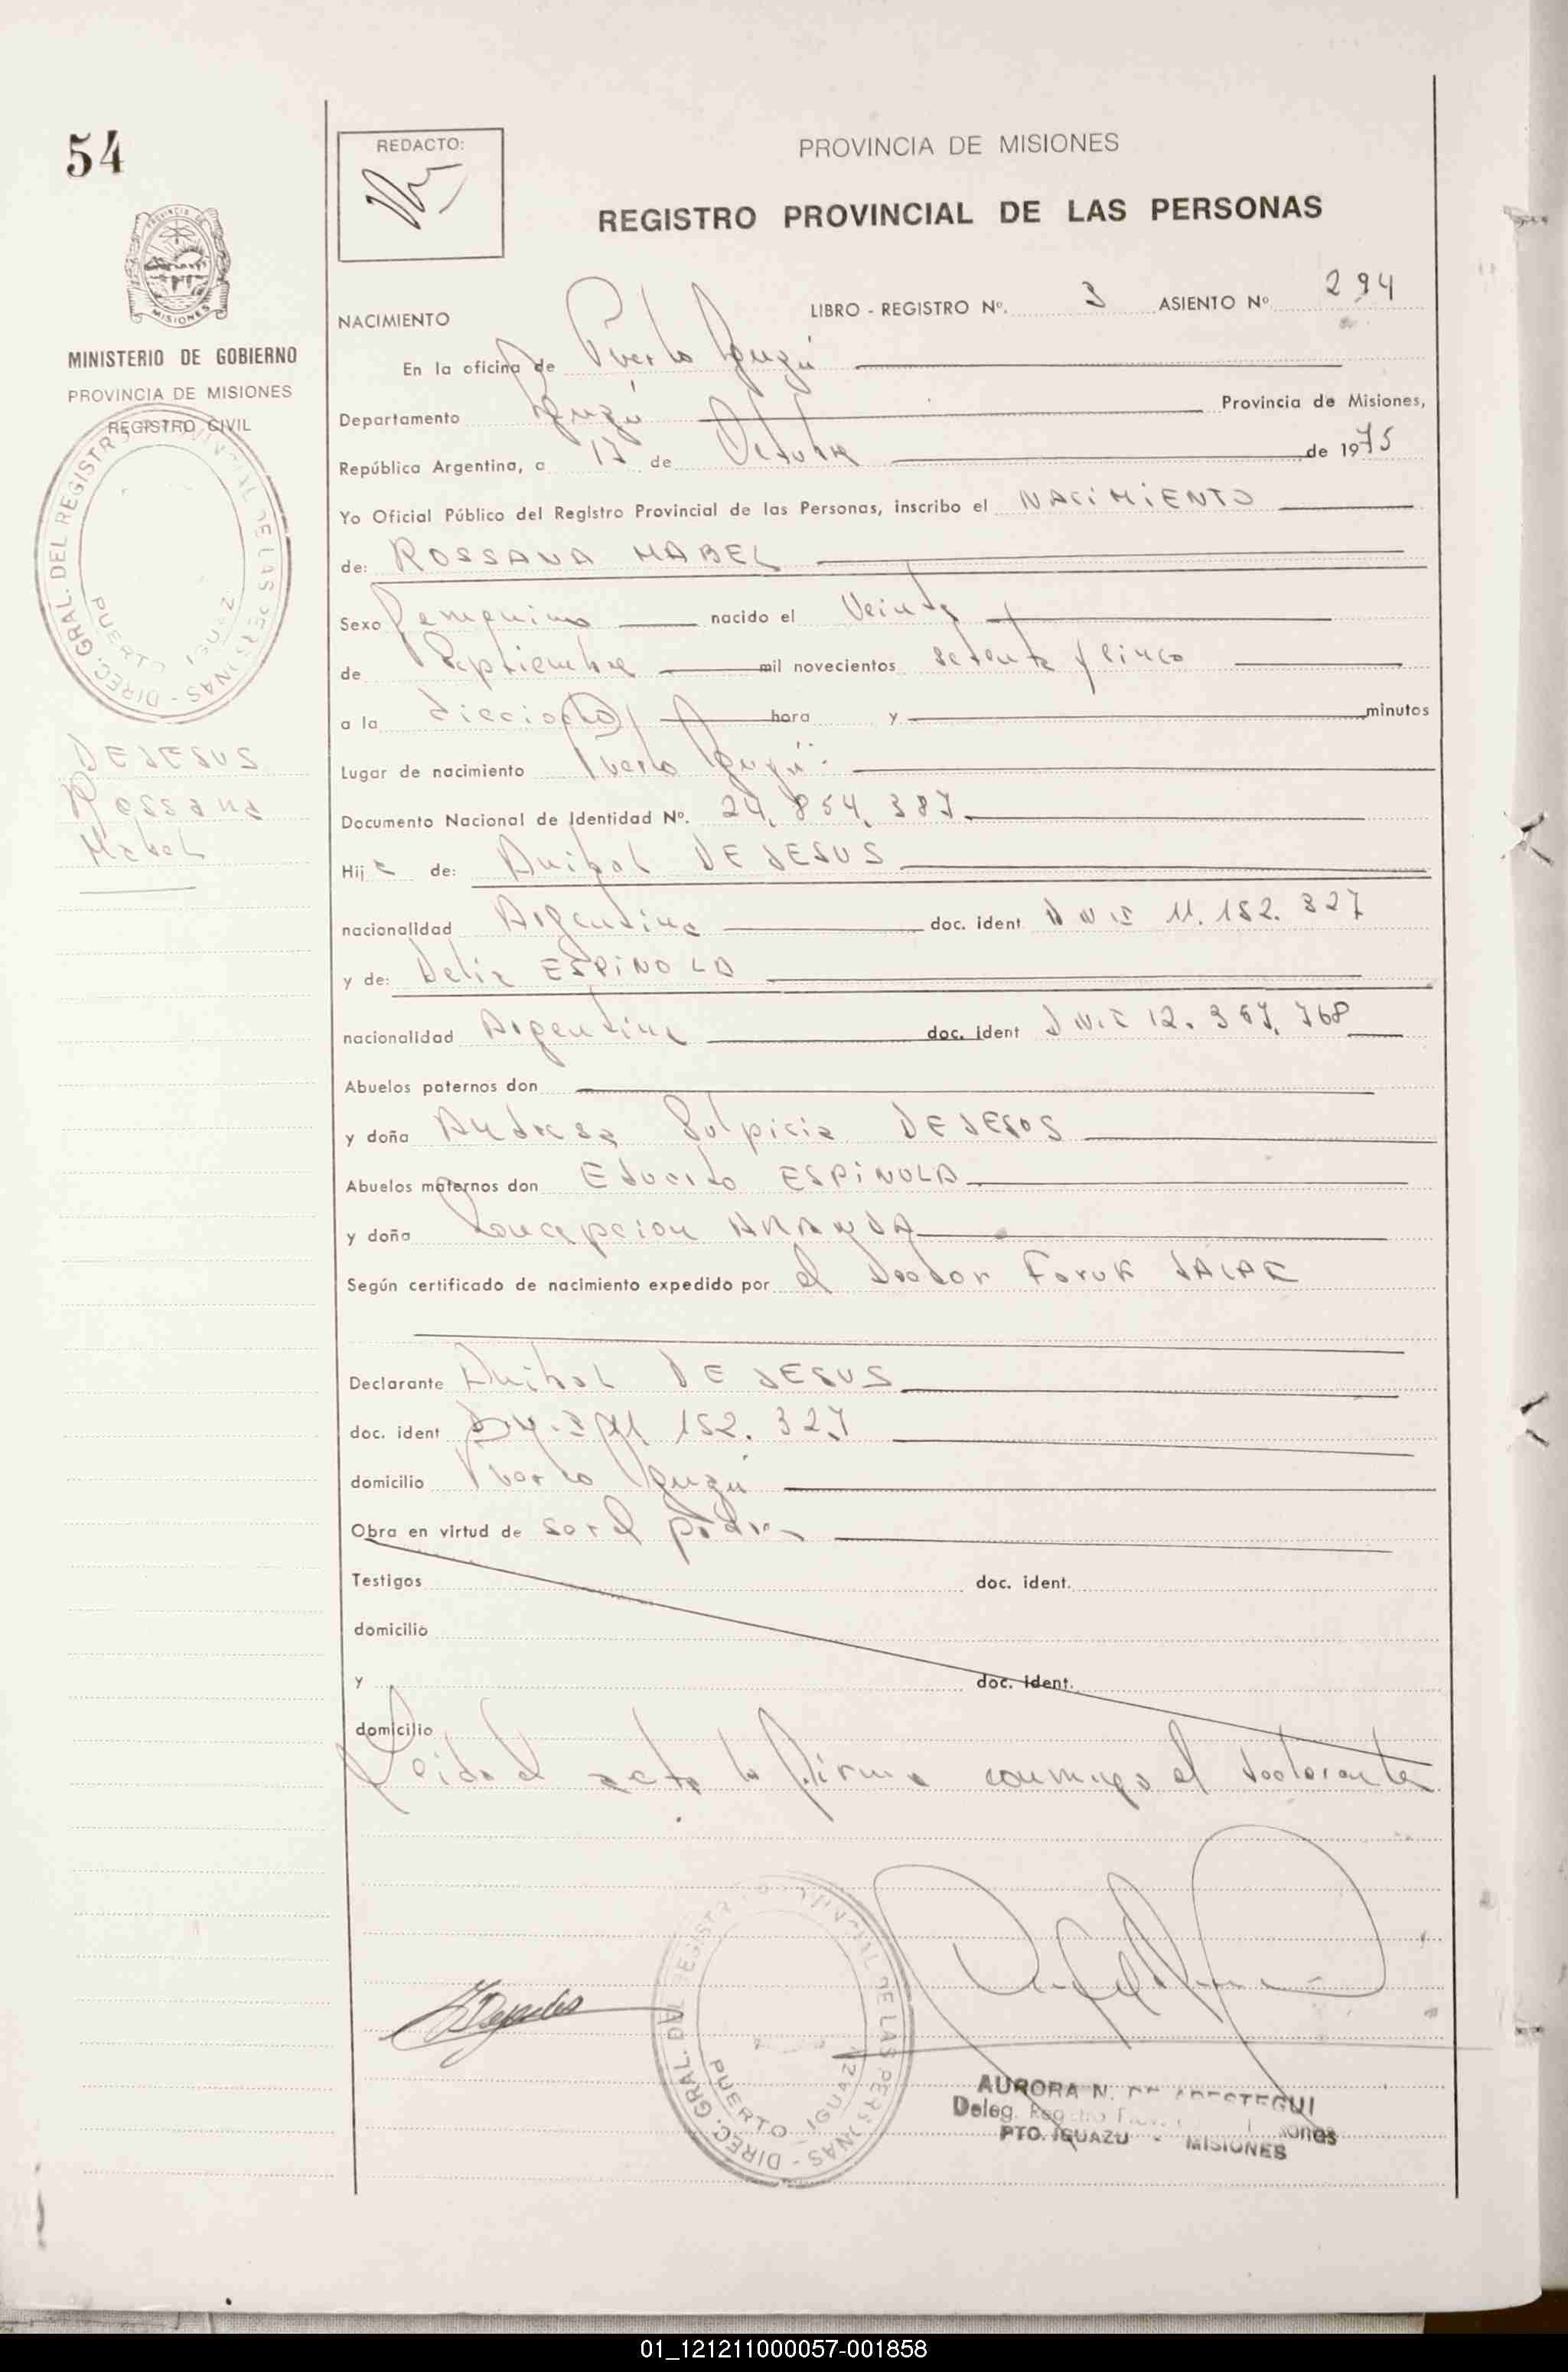 54
MINISTERIO DE GOBIERNO
PROVINCIA DE MISIONES
REGISTRO CIVIL
DIREC. GRAL. DEL REGISTRO PROVINCIAL DE LAS PERSONAS
PUERTO IGUAZU
DE JESUS
Rossana
Mabel
REDACTO:
PROVINCIA DE MISIONES
REGISTRO PROVINCIAL DE LAS PERSONAS
NACIMIENTO
LIBRO - REGISTRO Nº. 3 ASIENTO Nº 294
En la oficina de Puerto Iguazú
Departamento Iguazú Provincia de Misiones,
República Argentina, a 17 de Octubre de 1975
Yo Oficial Público del Registro Provincial de las Personas, inscribo el NACIMIENTO
de: ROSSANA MABEL
Sexo Femenino nacido el Veinte
de Septiembre mil novecientos setenta y cinco
a la dieciocho hora y minutos
Lugar de nacimiento Puerto Iguazú
Documento Nacional de Identidad Nº. 24.854.387
Hija de: Anibal DE JESUS
nacionalidad Argentina doc. ident DNI 11.152.327
y de: Delia ESPINOLA
nacionalidad Argentina doc. ident DNI 12.367.768
Abuelos paternos don
y doña Andresa Sulpicia DE JESUS
Abuelos maternos don Eduardo ESPINOLA
y doña Concepcion ARANDA
Según certificado de nacimiento expedido por el Doctor Faruk
Declarante Anibal DE JESUS
doc. ident DNI 11.152.327
domicilio Puerto Iguazú
Obra en virtud de ser el padre
Testigos doc. ident.
domicilio
y doc. ident.
domicilio
Leida el acta la firma conmigo el declarante
DIREC. GRAL. DEL REGISTRO PROVINCIAL DE LAS PERSONAS
PUERTO IGUAZU
AURORA N. DE ARESTEGUI
Deleg.
PTO. IGUAZU - MISIONES
01_121211000057-001858